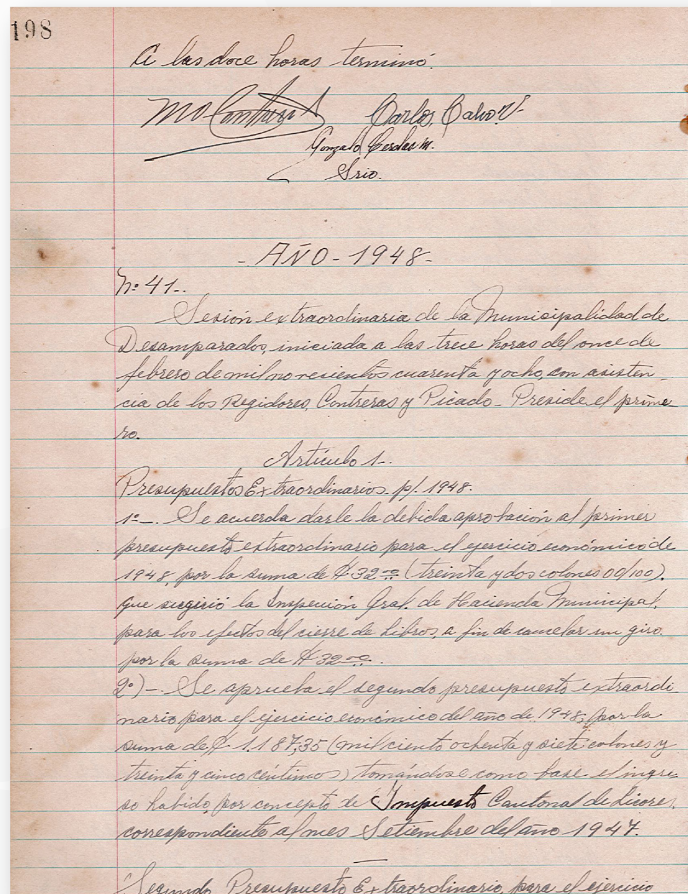 198
A las doce horas terminó.
MA Contreras Carlos Calvo V.
Gonzalo m.
Srio.
- AÑO - 1948 -
Nº 41..
Sesión extraordinaria de la Municipalidad de
Desamparados, iniciada a las trece horas del once de
febrero de mil novecientos cuarenta y ocho, con asisten-
cia de los Regidores, Contreras y Picado - Preside el prime-
ro.
Artículo 1.
Presupuestos Extraordinarios. p/. 1948.
1º-. Se acuerda darle la debida aprobación al primer
presupuesto extraordinario para el ejercicio económico de
1948, por la suma de ₡ 32.00 (treinta y dos colones 00/100).
que sugirió la Inspección Gral. de Hacienda Municipal,
para los efectos del cierre de Libros, a fin de cancelar un giro.
por la suma de ₡ 32.00.
2º)- Se aprueba el segundo presupuesto extraordi
nario para el ejercicio económico del año de 1948, por la
suma de ₡ 1.187,35 (mil ciento ochenta y siete colones y
treinta y cinco céntimos) tomándose como base el ingre-
so habido, por concepto de Impuesto Cantonal de Licores,
correspondiente al mes Setiembre del año 1947.
Segundo Presupuesto Extraordinario, para el ejercicio